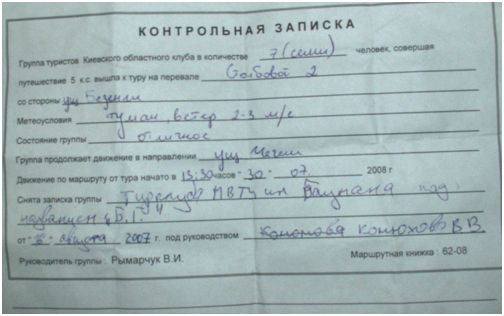 КОНТРОЛЬНАЯ ЗАПИСКА
Группа туристов Киевского областного клуба в количестве 7 (семи) человек, совершая
путешествие 5 к.с. вышла к туру на перевале 2
со стороны ущ Безенги
Метеоусловия туман, ветер 2-3 м/с
Состояние группы отличное
Группа продолжает движение в направлении ущ Чегем
Движение по маршруту от тура начато в 13:30 часов - 30 - 07 2008 г
Снята записка группы Турклуб МВТУ им Баумана под
названием
от августа 2007 г. под руководством Конюхова В В
Руководитель группы : Рымарчук В.И. Маршрутная книжка : 62-08